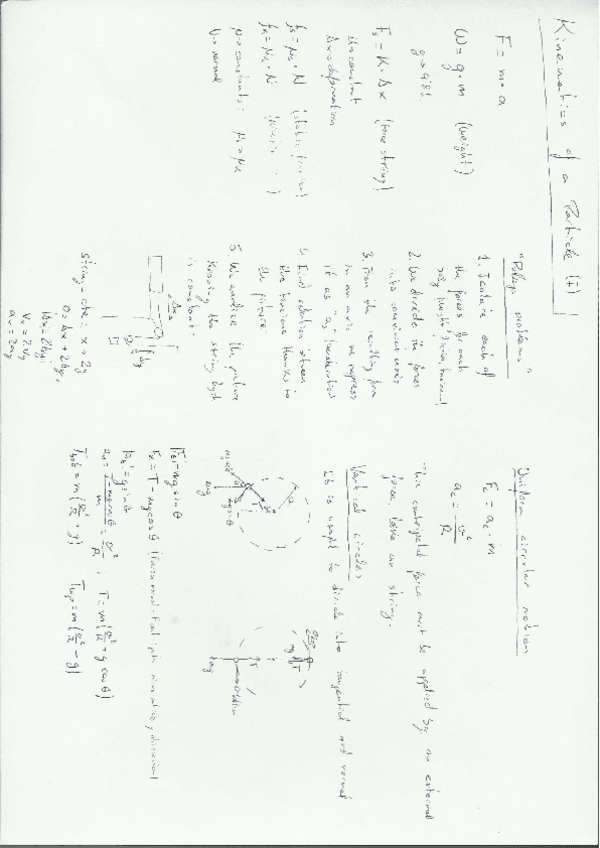 Kinematics of a Particle (I)
F = m · a
W = g · m (weight)
g → 9'81
Fs = K · Δx (  string)
K → constant
Δx → deformation
fs = μs · N (static friction)
fk = μk · N
μ → constants; μs > μk
N → normal
"Pulleys problems"
1. each of
the forces for each
body (weight, friction,
2. We divide the forces
into convenient axis
3. From the resulting force
in an axis, we express
it as
4. Find relation between
the tensions thanks to
the picture
5. We analyse the picture
knowing the string length
is constant:
Δx
Δy
string = cte = x + 2y
0 = Δx + 2Δy;
Δx = 2Δy;
Vx = 2Vy
ax = 2ay
Uniform circular motion
Fc = ac · m
ac = v²/R
The centripetal force must be applied by an external
force, like an string.
Vertical circles
It is useful to divide into tangential and normal
mg
mg
T
Ft = mg sin θ
Fn = T - mg cos θ
at = g sin θ
an = (T - mg cos θ)/m = v²/R ; T = m(v²/R + g cos θ)
Tbot = m(v²/R + g) Ttop = m(v²/R - g)